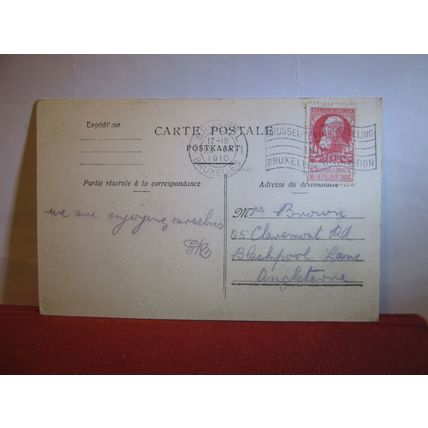 Expéditeur
CARTE POSTALE
POSTKAART
17-18
1910
BRUXELLES
BRUSSEL
BRUXELLES
Partie réservée à la correspondance
Adresse du destinataire
we are enjoying ourselves
Mrs Brown
55 Claremont Rd
Blackpool Lane
Angleterre